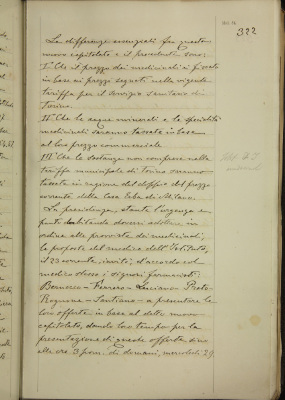 322
Le differenze essenziali fra questo
nuovo capitolato e il precedente sono:
I° Che il prezzo dei medicinali è fissato
in base ai prezzi segnati nella vigente
tariffa per il servizio sanitario di
Torino.
II° Che le acque minerali e le specialità
medicinali saranno tassate in base
al loro prezzo commerciale
III° Che le sostanze non comprese nella
tariffa municipale di Torino saranno
tassate in ragione del doppio del prezzo
corrente della Casa Erba di Milano.
La presidenza, stante l'urgenza
doversi addivenire in
ordine alle provviste dei medicinali,
le proposte del medico dell'Istituto,
il 23 corrente, invitò, d'accordo col
medico stesso i signori farmacisti:
Bernocco - Ferrero - Luciano - Prato
Rognone - Santiano - a presentare le
loro offerte in base al detto nuovo
capitolato, dando loro tempo per la
presentazione di queste offerte sino
alle ore 3 pom. di domani, mercoledì 29.